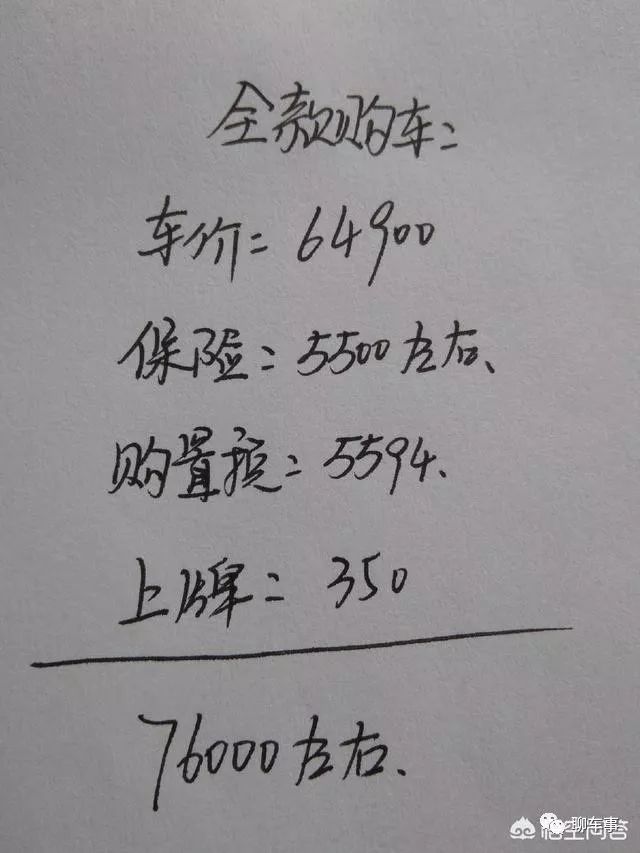 全款购车:
车价: 64900
保险: 5500左右、
购置税: 5594.
上牌: 350
76000左右.
聊车事
悟空问答